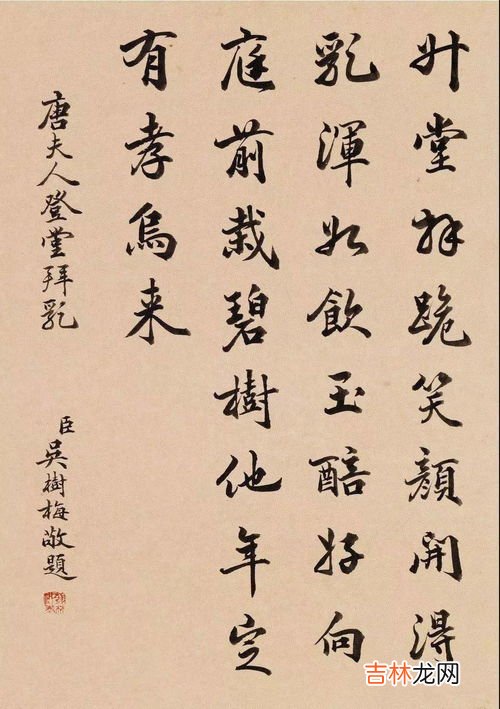 升堂拜跪笑顏開得
乳渾如飲玉醅好向
庭前栽碧樹他年定
有孝烏来
唐夫人登堂拜乳
臣吳樹梅敬題
吉林龙网